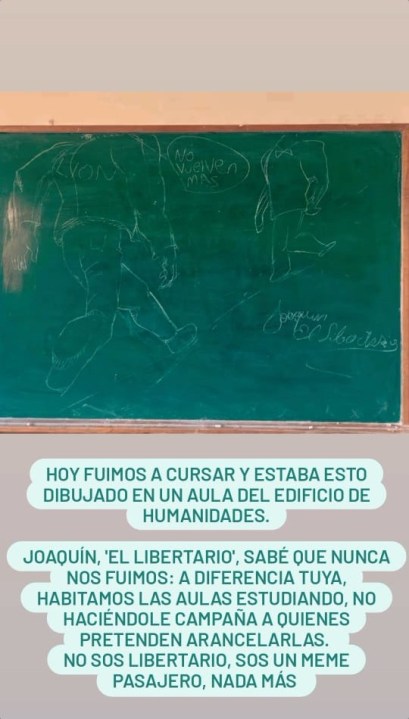 LION
NO
VUELVEN
MAS
Joaquin
El Libertario
HOY FUIMOS A CURSAR Y ESTABA ESTO
DIBUJADO EN UN AULA DEL EDIFICIO DE
HUMANIDADES.
JOAQUÍN, 'EL LIBERTARIO', SABÉ QUE NUNCA
NOS FUIMOS: A DIFERENCIA TUYA,
HABITAMOS LAS AULAS ESTUDIANDO, NO
HACIÉNDOLE CAMPAÑA A QUIENES
PRETENDEN ARANCELARLAS.
NO SOS LIBERTARIO, SOS UN MEME
PASAJERO, NADA MÁS